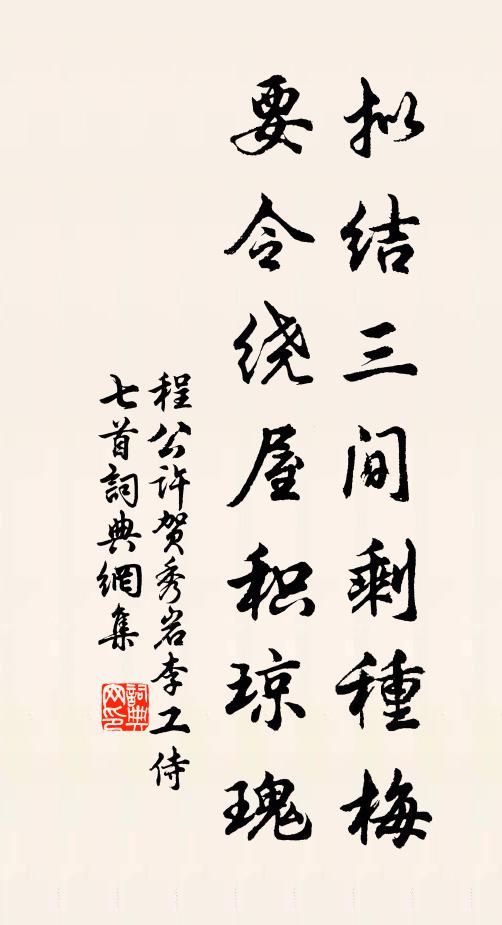 拟结三间剩種梅
要令绕屋积琼瑰
程公许贺秀岩李工侍
七首詞典網集
詞典网印